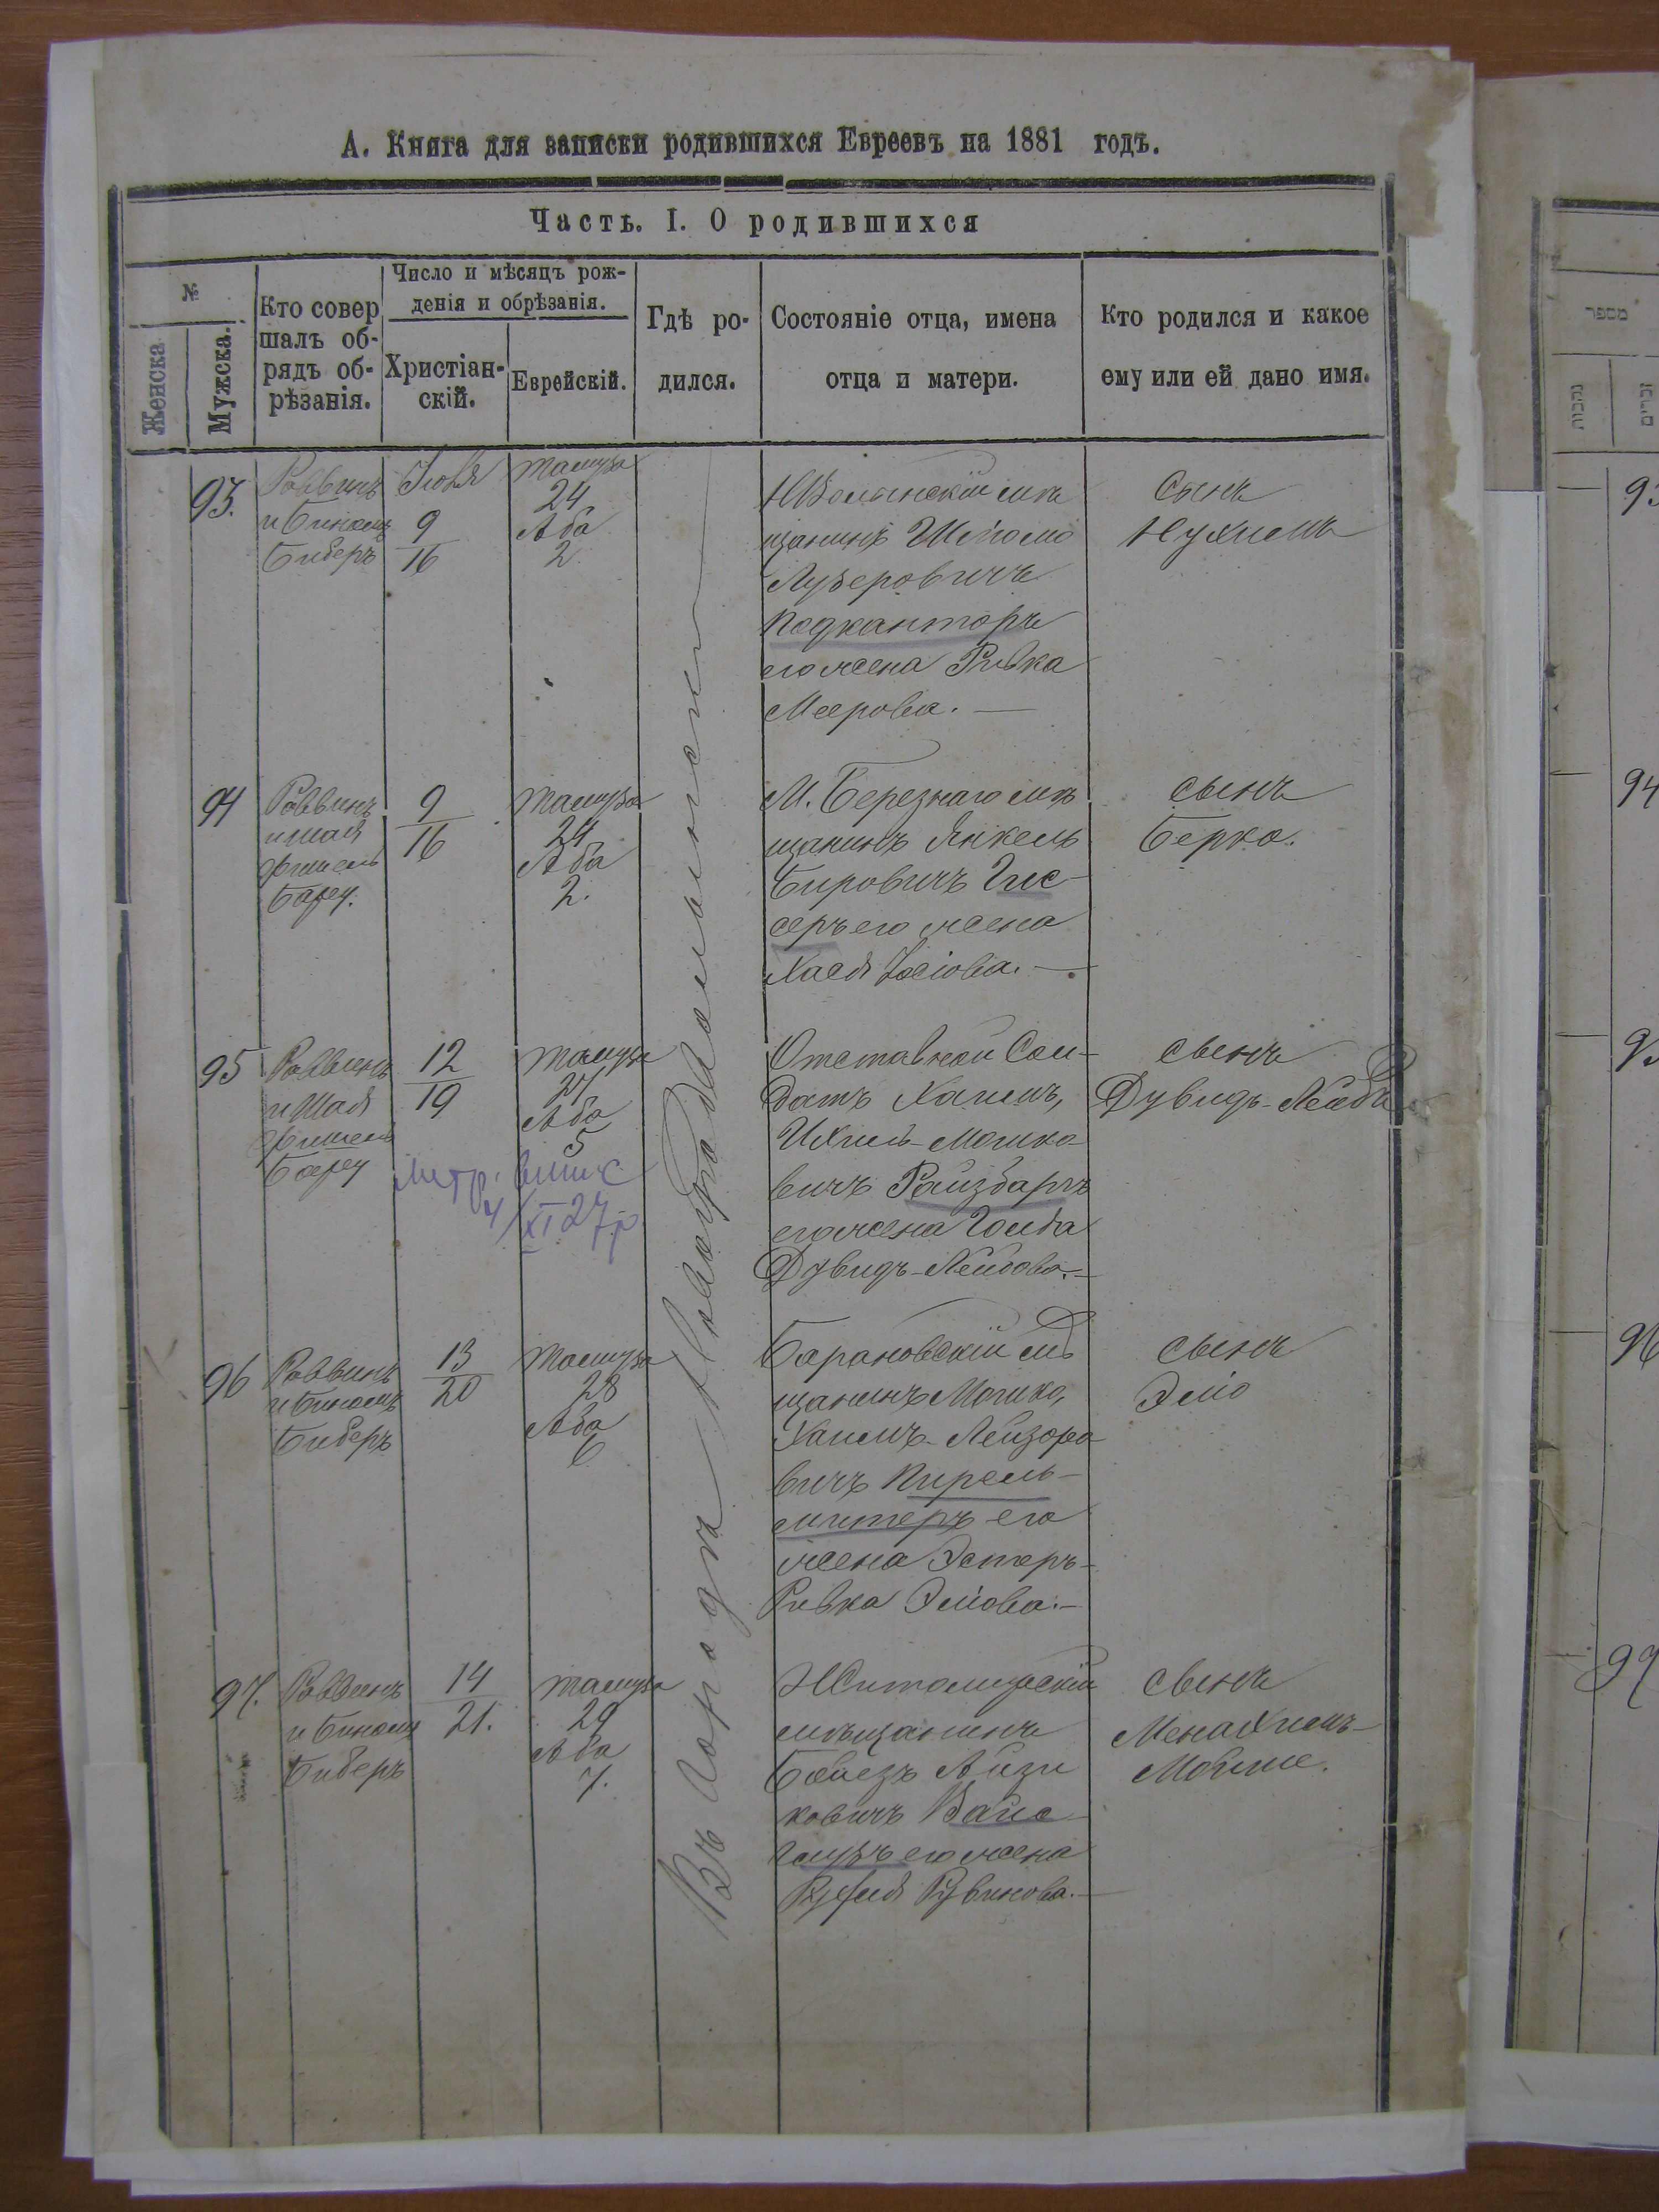 А. Книга для записки родившихся Евреевъ на 1881 годъ.
Часть. I. О родившихся
№
Женска
Мужска.
Кто совер
шалъ об-
рядъ об-
рѣзанія.
Число и мѣсяцъ рож-
денія и обрѣзанія.
Христіан-
скій.
Еврейскій.
Гдѣ ро-
дился.
Состояніе отца, имена
отца и матери.
Кто родился и какое
ему или ей дано имя.
Въ городѣ Новоградволынскѣ
93.
Раввинъ
и Биномъ
Биберъ
Іюля
9
16
Тамуза
24
Аба
2
НВолынскій мѣ
щанинъ Шлiомо
Лузеровичъ
Подканторъ
его жена Ривка
Меерова.
Сынъ
Нухимъ
94
Раввинъ
и Шая
Фишель
Барец.
9
16
Тамуза
24
Аба
2.
М. Березнаго мѣ
щанинъ Янкель
Бировичъ Гис-
серъ его жена
Хася Іосіова.
сынъ
Берко.
95
Раввинъ
и Шая
Фишель
Барец
12
19
Тамуза
27
Аба
5
Метр. вишс
4/XI 27 р.
Отставной Сол-
датъ Хаимъ,
Ихиль-Мошко
вичъ Райзбаргъ
его жена Голда
Дувидъ-Лейбова.
сынъ
Дувидъ-Лейбъ
96
Раввинъ
и Биномъ
Биберъ
13
20
Тамуза
28
Аба
6
Барановскій мѣ
щанинъ Мошко,
Хаимъ-Лейзоро
вичъ Пирель-
митеръ его
жена Эстеръ-
Ривка Эліова.
сынъ
Эліо
97.
Раввинъ
и Биномъ
Биберъ
14
21.
Тамуза
29
Аба
7.
Житомирскій
мѣщанинъ
Айзи
ковичъ Вайс-
его жена
Рувинова.
сынъ
Менахимъ-
Мойше.
מספר
נקבות
זכרים
93
94
95
96
97